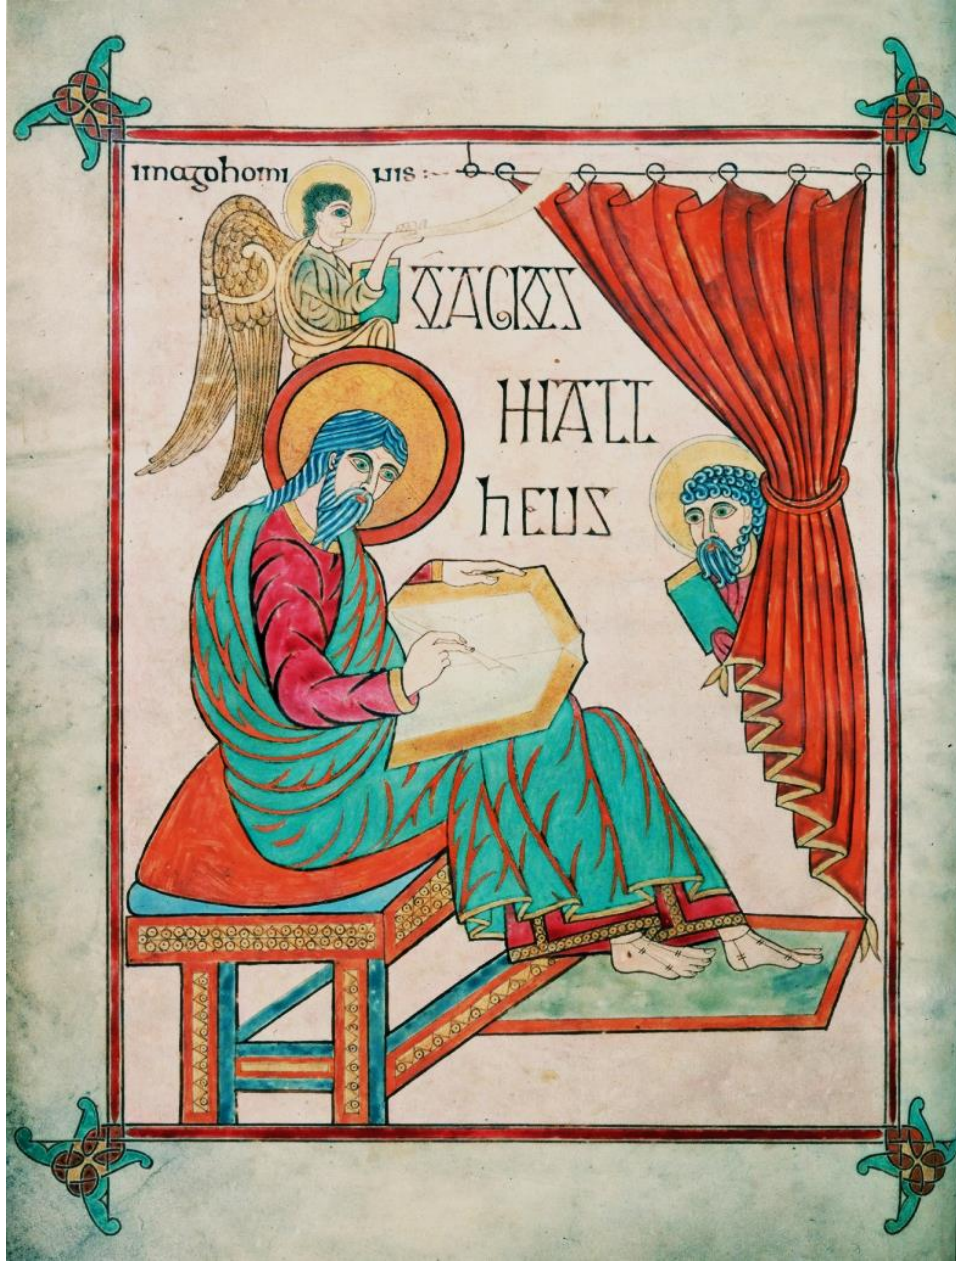 imago homi nis :-
O AGIOS
MATT
HEUS